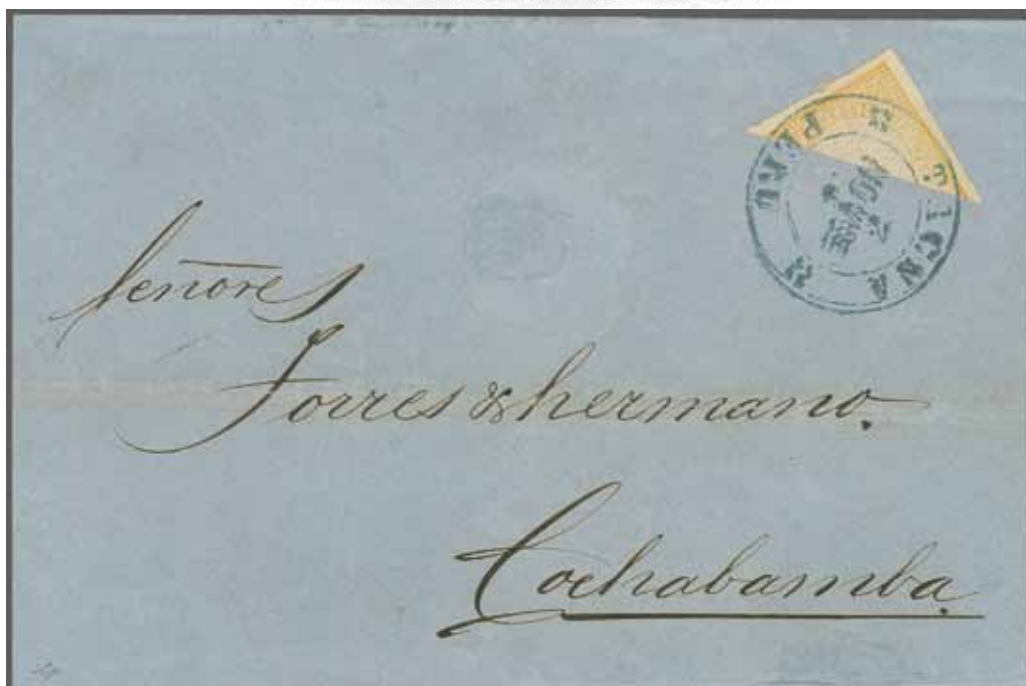 TACNA
PERU
Señores
Torres & hermano.
Cochabamba.